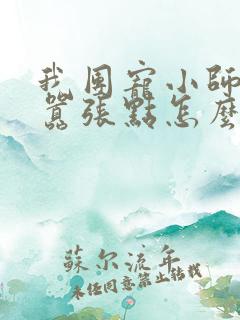 我團寵小師
囂張點怎麼
蘇尔流年
未经同意禁止转载